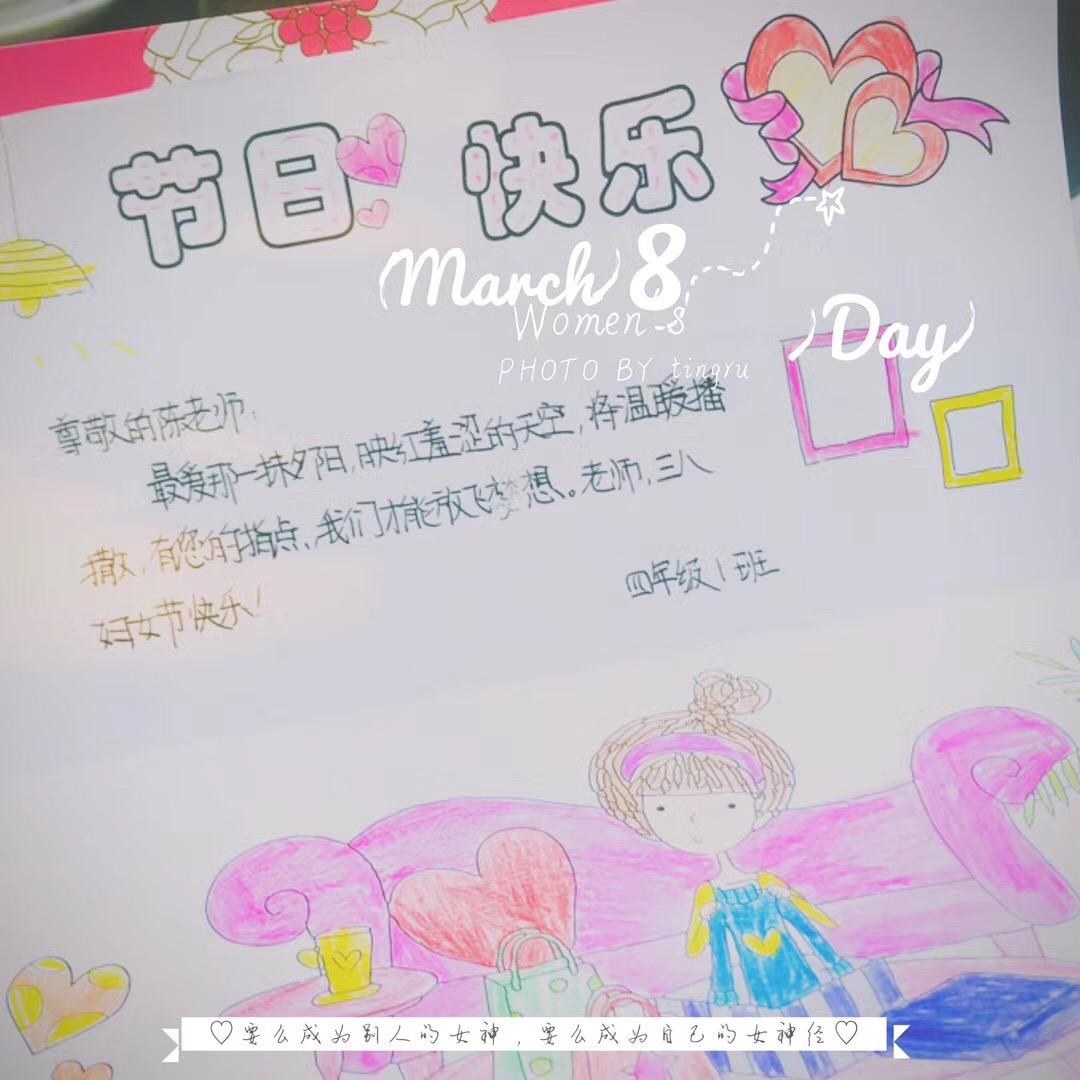 节日 快乐
March 8
Women-s
Day
PHOTO BY tingru
尊敬的陈老师：
最爱那一抹夕阳，映红羞涩的天空，将温暖播
撒，有您的指点、我们才能放飞梦想。老师，三八
妇女节快乐！
四年级1班
♡要么成为别人的女神，要么成为自己的女神经♡